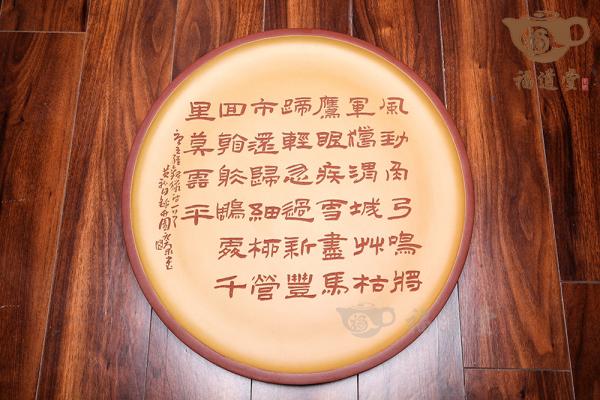 風勁角弓鳴將
軍獵渭城艸枯
鷹眼疾雪盡馬
蹄輕忽過新豐
市還歸細柳營
回看射鵰處千
里莫雲平
唐王維觀獵詩一首
福道堂